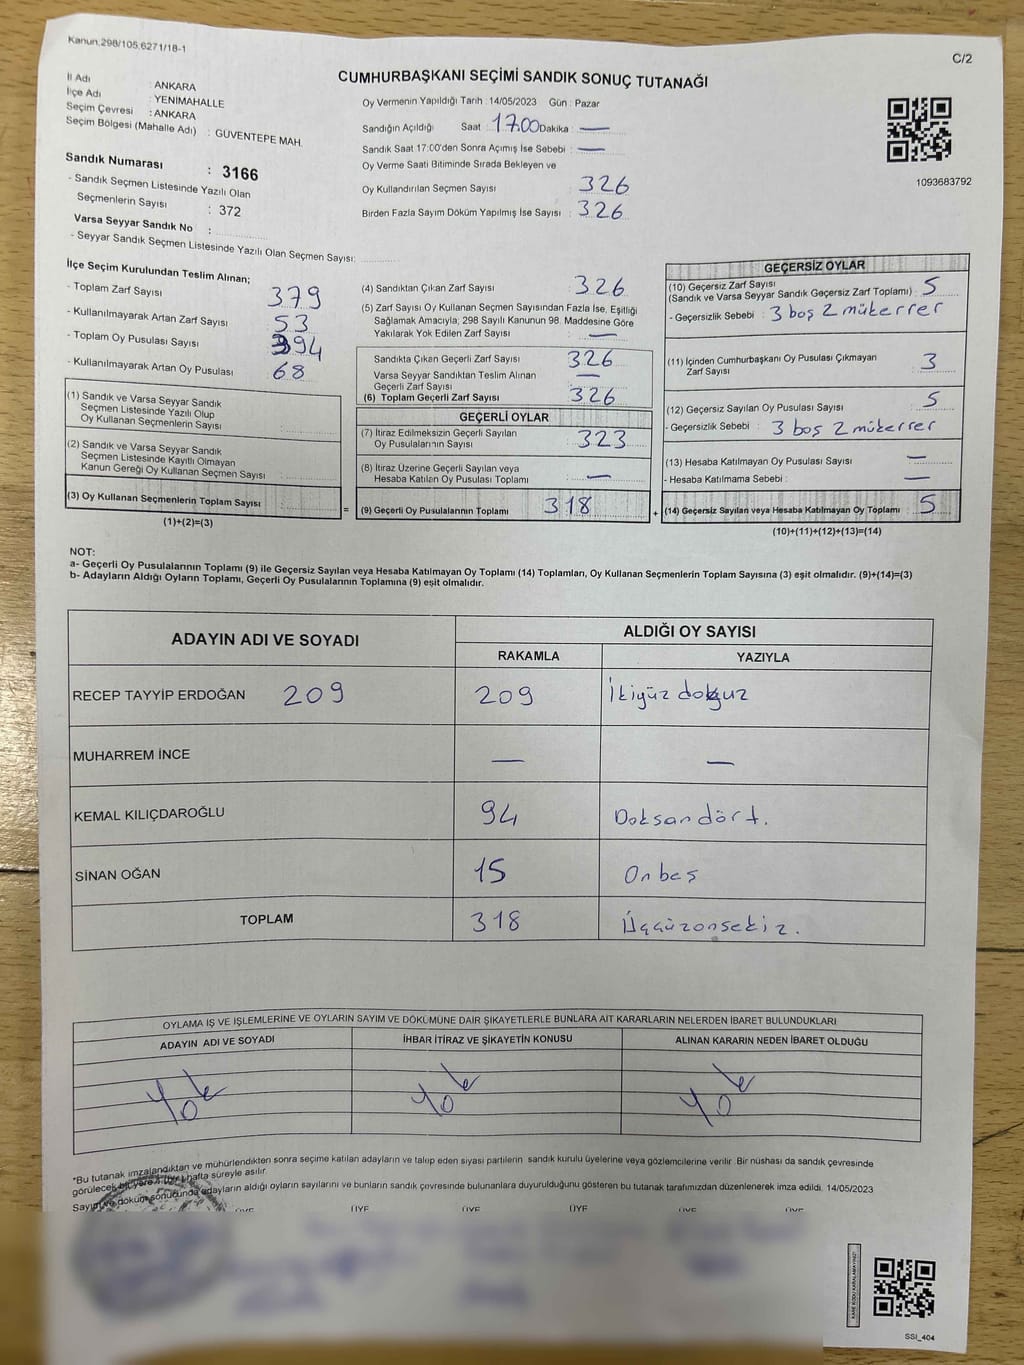 Kanun.298/105.6271/18-1
C/2
CUMHURBAŞKANI SEÇİMİ SANDIK SONUÇ TUTANAĞI
İl Adı : ANKARA
İlçe Adı : YENİMAHALLE
Seçim Çevresi : ANKARA
Seçim Bölgesi (Mahalle Adı) : GÜVENTEPE MAH.
Sandık Numarası : 3166
- Sandık Seçmen Listesinde Yazılı Olan
Seçmenlerin Sayısı : 372
Varsa Seyyar Sandık No :
- Seyyar Sandık Seçmen Listesinde Yazılı Olan Seçmen Sayısı:
Oy Vermenin Yapıldığı Tarih : 14/05/2023 Gün : Pazar
Sandığın Açıldığı Saat : 17.00 Dakika : —
Sandık Saat 17:00'den Sonra Açımış İse Sebebi : —
Oy Verme Saati Bitiminde Sırada Bekleyen ve
Oy Kullandırılan Seçmen Sayısı : 326
Birden Fazla Sayım Döküm Yapılmış İse Sayısı : 326
1093683792
İlçe Seçim Kurulundan Teslim Alınan;
- Toplam Zarf Sayısı : 379
- Kullanılmayarak Artan Zarf Sayısı : 53
- Toplam Oy Pusulası Sayısı : 394
- Kullanılmayarak Artan Oy Pusulası : 68
(1) Sandık ve Varsa Seyyar Sandık
Seçmen Listesinde Yazılı Olup
Oy Kullanan Seçmenlerin Sayısı :
(2) Sandık ve Varsa Seyyar Sandık
Seçmen Listesinde Kayıtlı Olmayan
Kanun Gereği Oy Kullanan Seçmen Sayısı :
(3) Oy Kullanan Seçmenlerin Toplam Sayısı :
(1)+(2)=(3)
=
(4) Sandıktan Çıkan Zarf Sayısı : 326
(5) Zarf Sayısı Oy Kullanan Seçmen Sayısından Fazla İse, Eşitliği
Sağlamak Amacıyla; 298 Sayılı Kanunun 98. Maddesine Göre
Yakılarak Yok Edilen Zarf Sayısı : —
Sandıkta Çıkan Geçerli Zarf Sayısı : 326
Varsa Seyyar Sandıktan Teslim Alınan
Geçerli Zarf Sayısı : —
(6) Toplam Geçerli Zarf Sayısı : 326
GEÇERLİ OYLAR
(7) İtiraz Edilmeksizin Geçerli Sayılan
Oy Pusulalarının Sayısı : 323
(8) İtiraz Üzerine Geçerli Sayılan veya
Hesaba Katılan Oy Pusulası Toplamı : —
(9) Geçerli Oy Pusulalarının Toplamı : 318
+
GEÇERSİZ OYLAR
(10) Geçersiz Zarf Sayısı
(Sandık ve Varsa Seyyar Sandık Geçersiz Zarf Toplamı) : 5
- Geçersizlik Sebebi : 3 boş 2 mükerrer
(11) İçinden Cumhurbaşkanı Oy Pusulası Çıkmayan
Zarf Sayısı : 3
(12) Geçersiz Sayılan Oy Pusulası Sayısı : 5
- Geçersizlik Sebebi : 3 boş 2 mükerrer
(13) Hesaba Katılmayan Oy Pusulası Sayısı : —
- Hesaba Katılmama Sebebi : —
(14) Geçersiz Sayılan veya Hesaba Katılmayan Oy Toplamı : 5
(10)+(11)+(12)+(13)=(14)
NOT:
a- Geçerli Oy Pusulalarının Toplamı (9) ile Geçersiz Sayılan veya Hesaba Katılmayan Oy Toplamı (14) Toplamları, Oy Kullanan Seçmenlerin Toplam Sayısına (3) eşit olmalıdır. (9)+(14)=(3)
b- Adayların Aldığı Oyların Toplamı, Geçerli Oy Pusulalarının Toplamına (9) eşit olmalıdır.
ADAYIN ADI VE SOYADI ALDIĞI OY SAYISI
RAKAMLA YAZIYLA
RECEP TAYYİP ERDOĞAN 209 209 İkiyüz dokuz
MUHARREM İNCE — —
KEMAL KILIÇDAROĞLU 94 Doksandört.
SİNAN OĞAN 15 Onbeş
TOPLAM 318 Üçyüzonsekiz.
OYLAMA İŞ VE İŞLEMLERİNE VE OYLARIN SAYIM VE DÖKÜMÜNE DAİR ŞİKAYETLERLE BUNLARA AİT KARARLARIN NELERDEN İBARET BULUNDUKLARI
ADAYIN ADI VE SOYADI İHBAR İTİRAZ VE ŞİKAYETİN KONUSU ALINAN KARARIN NEDEN İBARET OLDUĞU
Yok Yok Yok
*Bu tutanak imzalandıktan ve mühürlendikten sonra seçime katılan adayların ve talep eden siyasi partilerin sandık kurulu üyelerine veya gözlemcilerine verilir. Bir nüshası da sandık çevresinde
görülecek bir yere 1 (bir) hafta süreyle asılır.
Sayım ve döküm sonucunda adayların aldığı oyların sayılarını ve bunların sandık çevresinde bulunanlara duyurulduğunu gösteren bu tutanak tarafımızdan düzenlenerek imza edildi. 14/05/2023
ÜYE ÜYE ÜYE ÜYE ÜYE ÜYE
SSİ_404